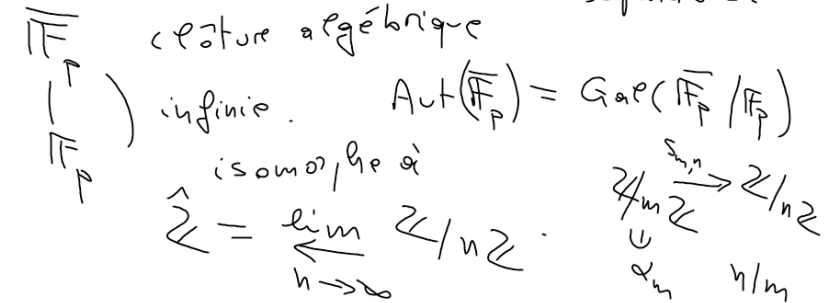 F̅_p clôture algébrique
| ) infinie. Aut(F̅_p) = Gal(F̅_p/F_p)
F_p isomorphe à
Ẑ = lim← Z/nZ. Z/mZ →^{S_{m,n}} Z/nZ
n→∞ ∪ α_m n/m